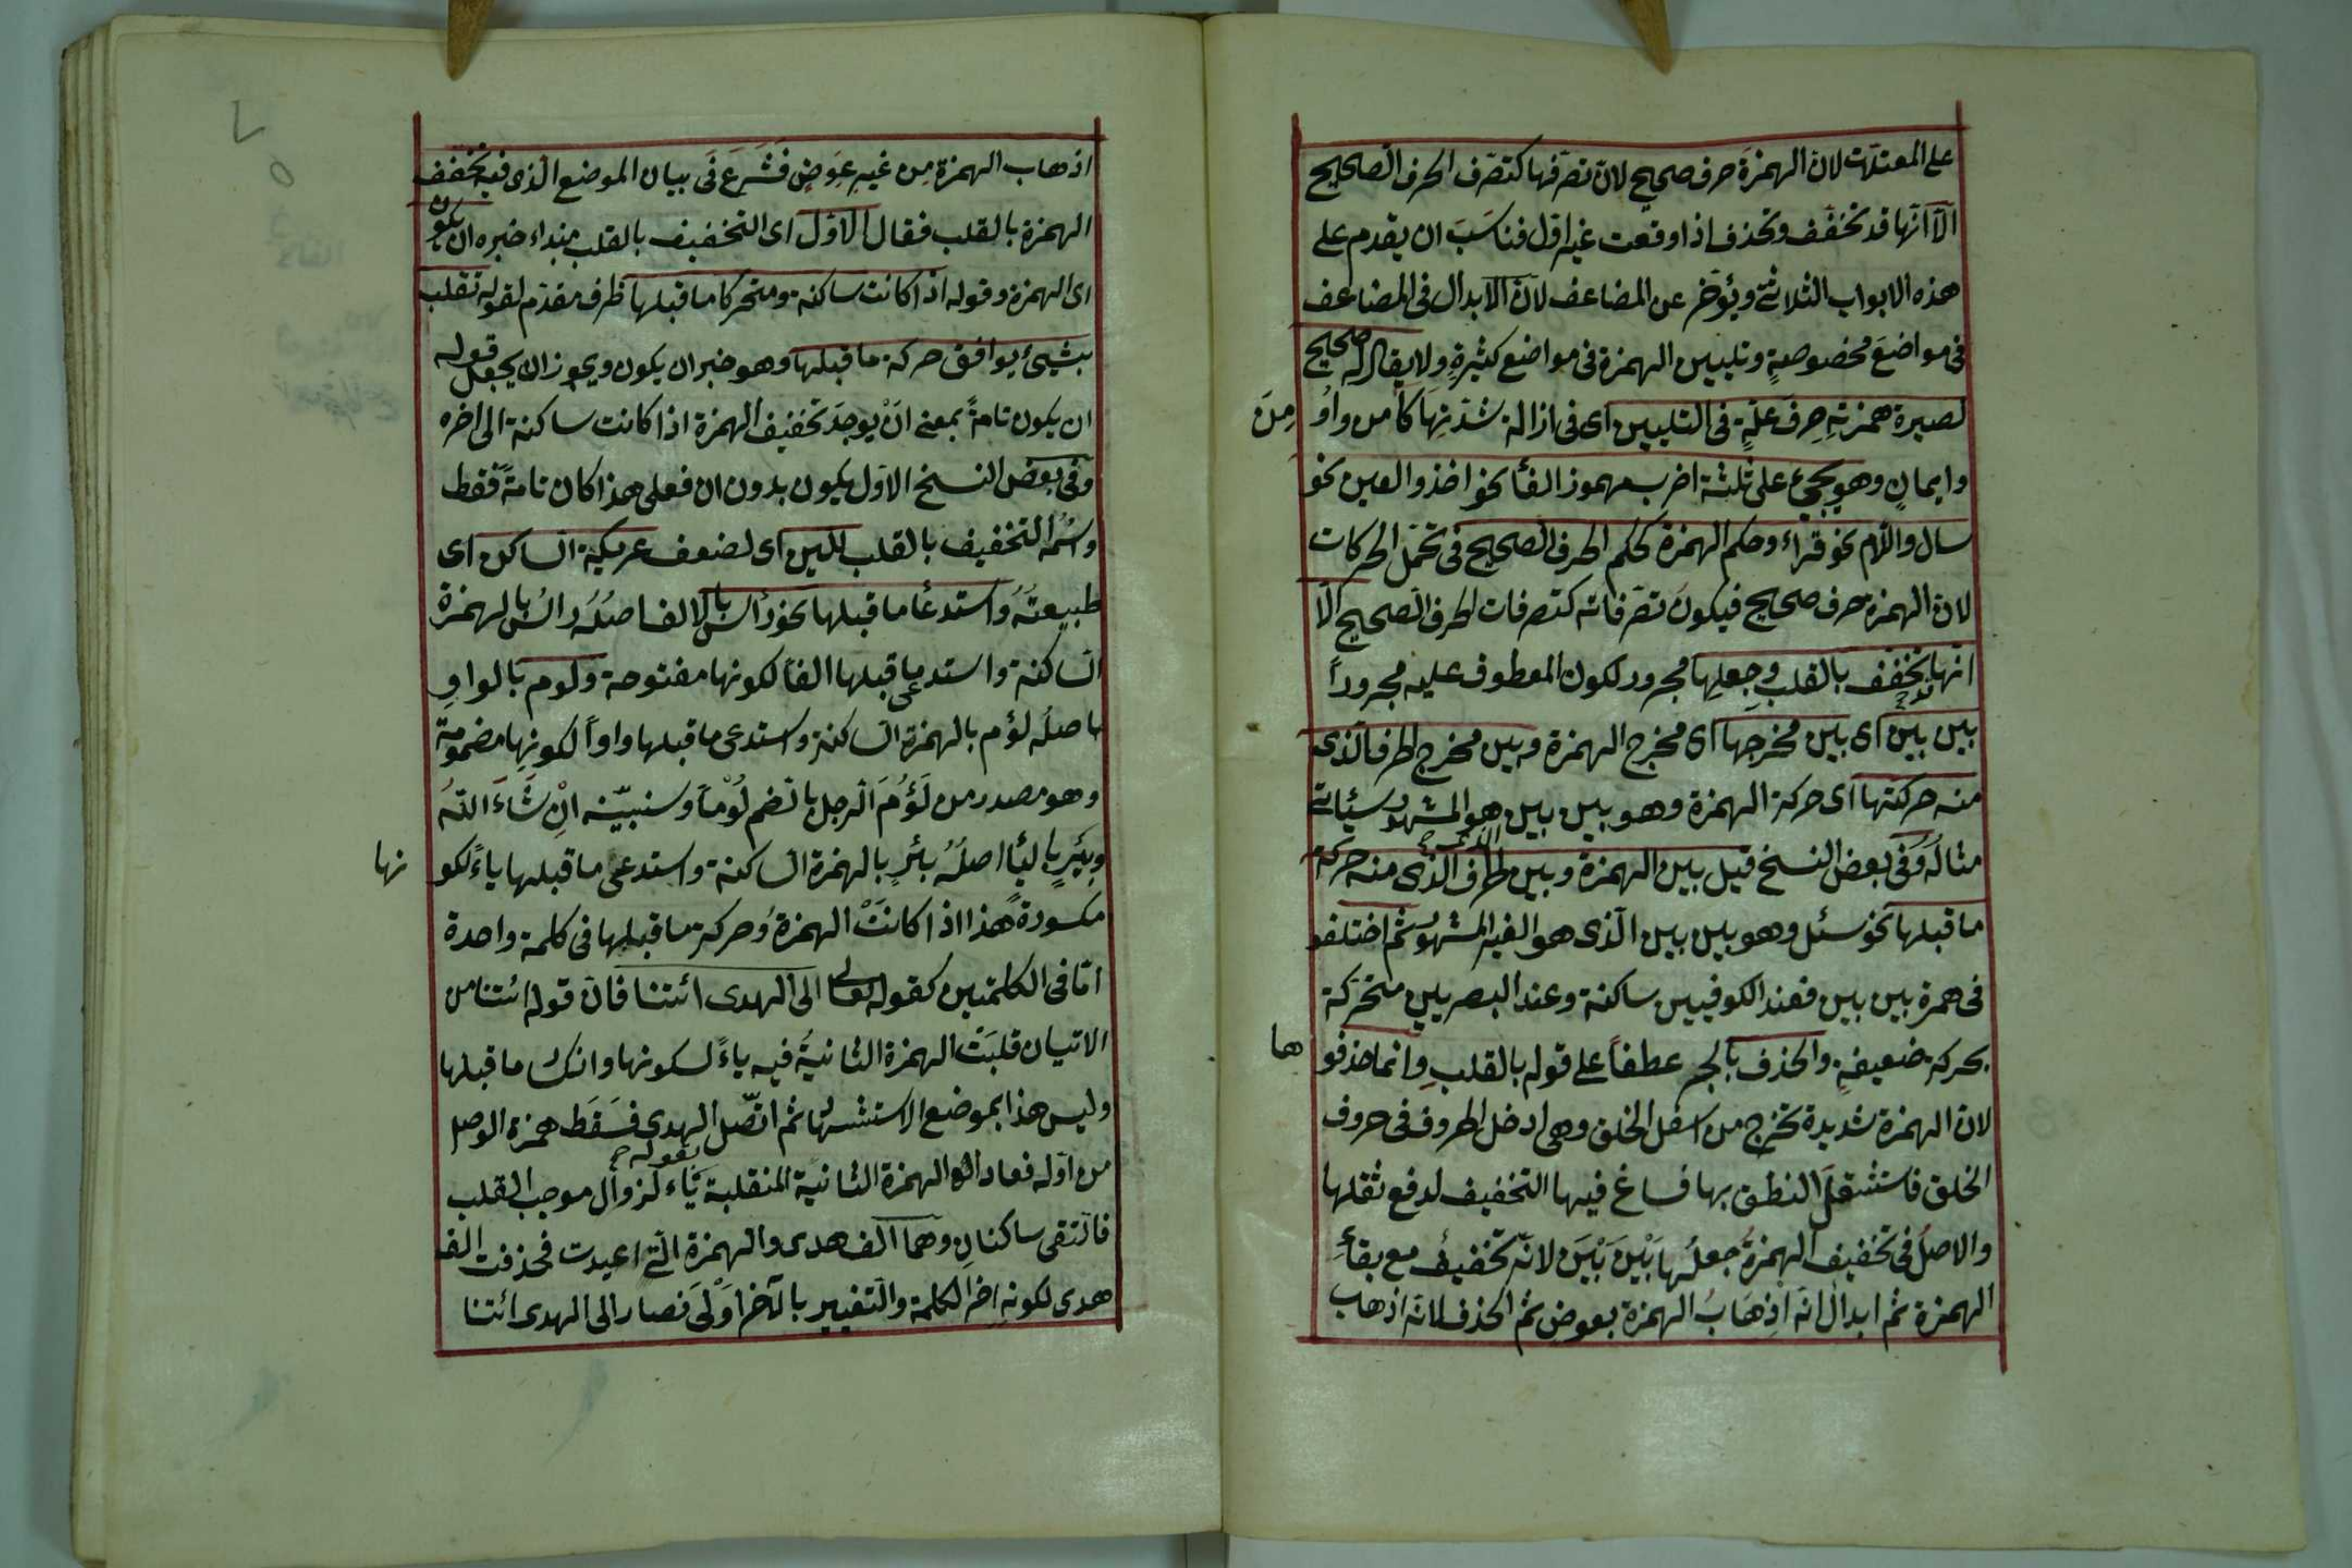 على المعتلات لان الهمزة حرف صحيح لان تصرفها كتصرف الحرف الصحيح
الا انها قد تخفف وتحذف اذا وقعت غير اول فناسب ان يقدم على
هذه الابواب الثلاثة ويؤخر عن المضاعف لان الابدال فى المضاعف
فى مواضع مخصوصة وتليين الهمزة فى مواضع كثيرة ولا يقال له صحيح
لصيرة همزته حرف علة فى التليين اى فى ازالة شدتها كآمن واو من
وايمان وهو يجئ على ثلثة اضرب مهموز الفاء نحو اخذ والعين نحو
سال واللام نحو قراء وحكم الهمزة كحكم الحرف الصحيح فى تحمل الحركات
لان الهمزة حرف صحيح فيكون تصرفاته كتصرفات الحرف الصحيح الا
انها قد تخفف بالقلب وجعلها مجرور لكون المعطوف عليه مجروراً
بين بين اى بين مخرجها اى مخرج الهمزة وبين مخرج الحرف الذى
منه حركتها اى حركة الهمزة وهو بين بين هو المشهور سيأتى
مثاله وفى بعض النسخ قيل بين الهمزة وبين الحرف الذى منه حركة
ما قبلها نحو سئل وهو بين بين الذى هو الغير المشهور ثم اختلفو
فى همزة بين بين فعند الكوفيين ساكنة وعند البصريين متحركة
بحركة ضعيفة والحذف بالجر عطفاً على قوله بالقلب وانما حذفو ها
لان الهمزة شديدة تخرج من اسفل الحلق وهى ادخل الحروف فى حروف
الحلق فاستثقل النطق بها فساغ فيها التخفيف لدفع ثقلها
والاصل فى تخفيف الهمزة جعلها بَيْنَ بَيْنَ لانه تخفيف مع بقاء
الهمزة ثم ابدال لانه اذهاب الهمزة بعوض ثم الحذف لانه اذهب
اذهاب الهمزة من غير عوض فشرع فى بيان الموضع الذى فيه تخفف
الهمزة بالقلب فقال الاول اى التخفيف بالقلب مبتداء خبره ان يكون
اى الهمزة وقوله اذا كانت ساكنة ومتحركا ما قبلها ظرف مقدم لقوله تقلب
بشيئ يوافق حركة ما قبلها وهو خبر ان يكون ويجوز ان يجعل قوله
ان يكون تامة بمعنى ان يوجد تخفيف الهمزة اذا كانت ساكنة الى اخره
وفى بعض النسخ الاول يكون بدون ان فعلى هذا كان تامة فقط
واسمه التخفيف بالقلب للين اى لضعف عريكة الساكن اى
طبيعته واستدعا ما قبلها نحو راس بالالف اصله رأس بالهمزة
الساكنة واستدعى ما قبلها الفا لكونها مفتوحة ولوم بالواو
اصله لؤم بالهمزة الساكنة واستدعى ما قبلها واواً لكونها مضمومة
وهو مصدر من لَؤُمَ الرجل بالضم لُوْماً وسنبيّنه اِنْ شَاءَ اللّٰه
وبير باليا اصله بئر بالهمزة الساكنة واستدعى ما قبلها ياءً لكو نها
مكسورة هذا اذا كانت الهمزة وحركة ما قبلها فى كلمة واحدة
اما فى الكلمتين كقوله تعالى الى الهدى ائتنا فان قوله ائتنا من
الاتيان قلبت الهمزة الثانية فيه ياءً لسكونها وانكسار ما قبلها
وليس هذا بموضع الاستشهاد ثم اتصل الهدى بقوله فسقط همزة الوصل
من اوله فعاد الهمزة الثانية المنقلبة ياء لزوال موجب القلب
فالتقى ساكنان وهما الف هدى والهمزة التى اعيدت فحذفت الف
هدى لكونه اخر الكلمة والتغيير بالآخر اَوْلىَ فصار الى الهدى ائتنا